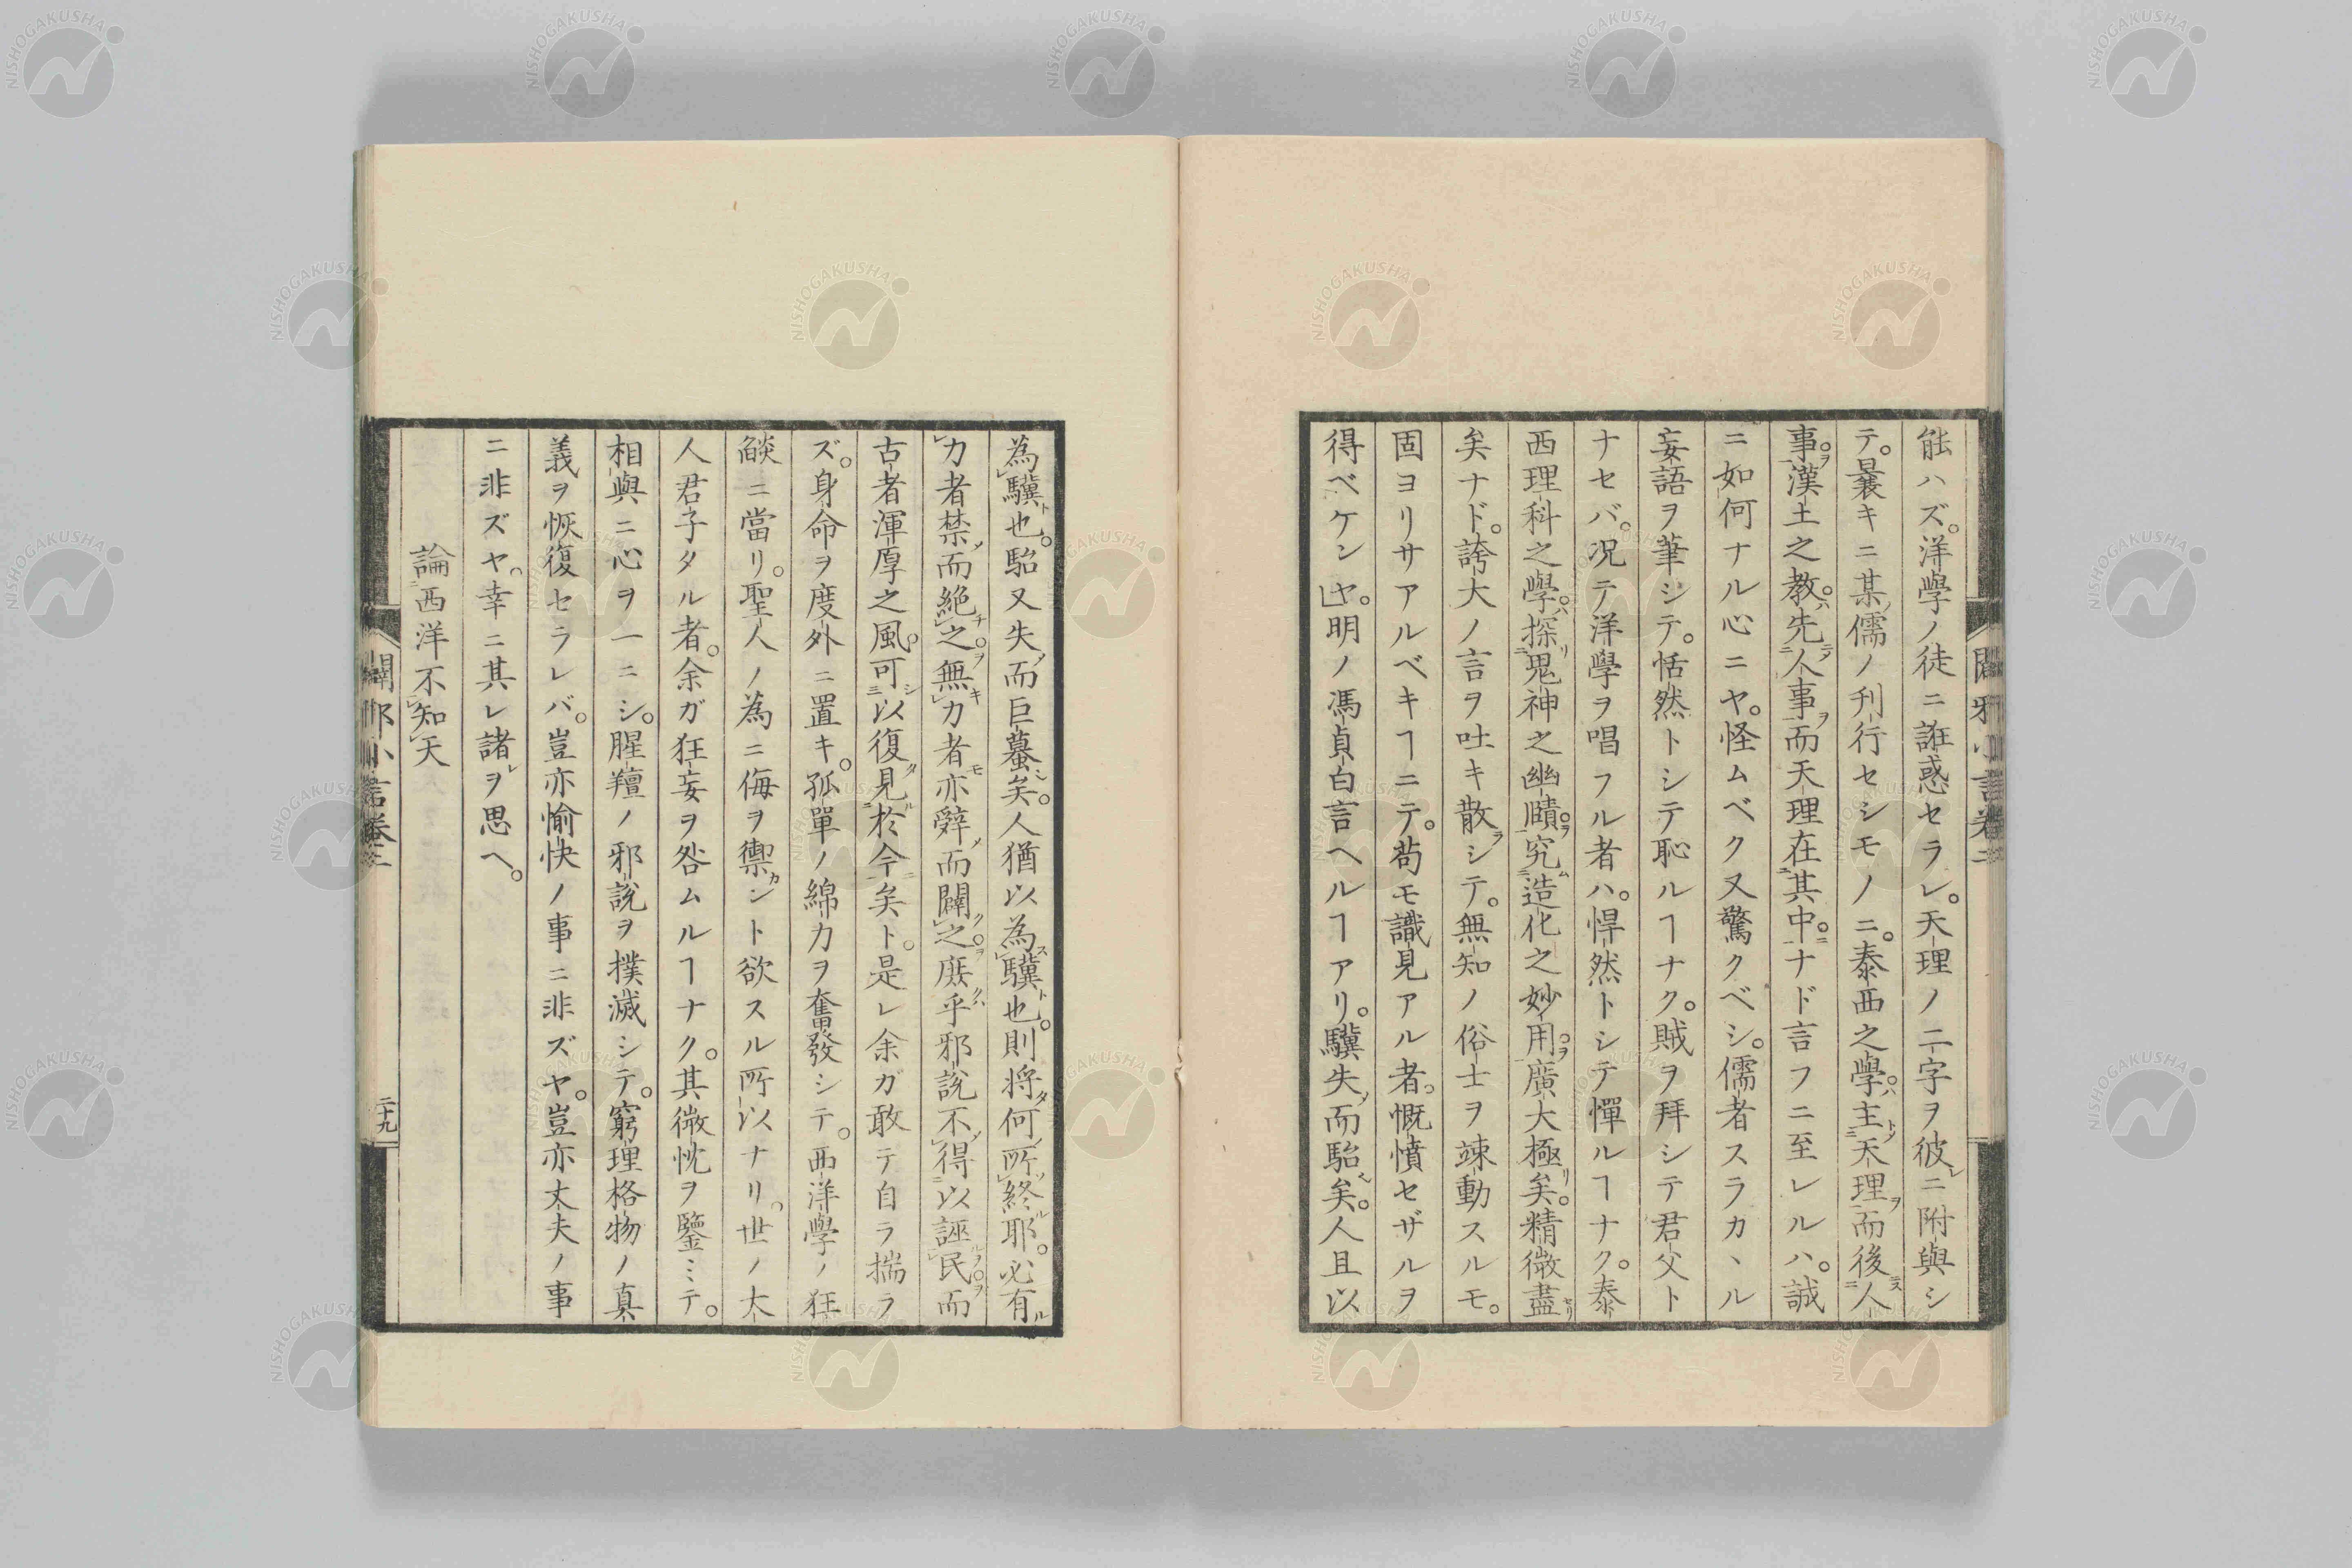 能ハズ。洋學ノ徒ニ誑惑セラレ。天理ノ二字ヲ彼レニ附與シ
テ。曩キニ某儒ノ刊行セシモノニ。泰西之學。主天理而後人
事。漢土之教。先人事而天理在其中。ナド言フニ至レルハ。誠
ニ如何ナル心ニヤ。怪ムベク又驚クベシ。儒者スラカヽル
妄語ヲ筆シテ。恬然トシテ恥ルヿナク。賊ヲ拜シテ君父ト
ナセバ。况テ洋學ヲ唱フル者ハ。悍然トシテ憚ルヿナク。泰
西理科之學。探鬼神之幽賾。究造化之妙用。廣大極矣。精微盡
矣ナド。誇大ノ言ヲ吐キ散シテ。無知ノ俗士ヲ竦動スルモ。
固ヨリサアルベキヿニテ。苟モ識見アル者。慨憤セザルヲ
得ベケンヤ。明ノ馮貞白言ヘルヿアリ。驥失而駘矣。人且以
為驥也。駘又失而巨蟇矣。人猶以為驥也。則将何所終耶。必有
力者禁而絶之。無力者亦辭而闢之。庶乎邪說不得以誣民而
古者渾厚之風。可以復見於今矣ト。是レ余ガ敢テ自ラ揣ラ
ズ。身命ヲ度外ニ置キ。孤單ノ綿力ヲ奮發シテ。西洋學ノ狂
燄ニ當リ。聖人ノ為ニ侮ヲ禦ント欲スル所以ナリ。世ノ大
人君子タル者。余ガ狂妄ヲ咎ムルヿナク。其微忱ヲ鑒ミテ。
相與ニ心ヲ一ニシ。腥羶ノ邪說ヲ撲滅シテ。窮理格物ノ真
義ヲ恢復セラレバ。豈亦愉快ノ事ニ非ズヤ。豈亦丈夫ノ事
ニ非ズヤ。幸ニ其レ諸ヲ思ヘ。
論西洋不知天
闢邪小言卷二
二十九
NISHOGAKUSHA